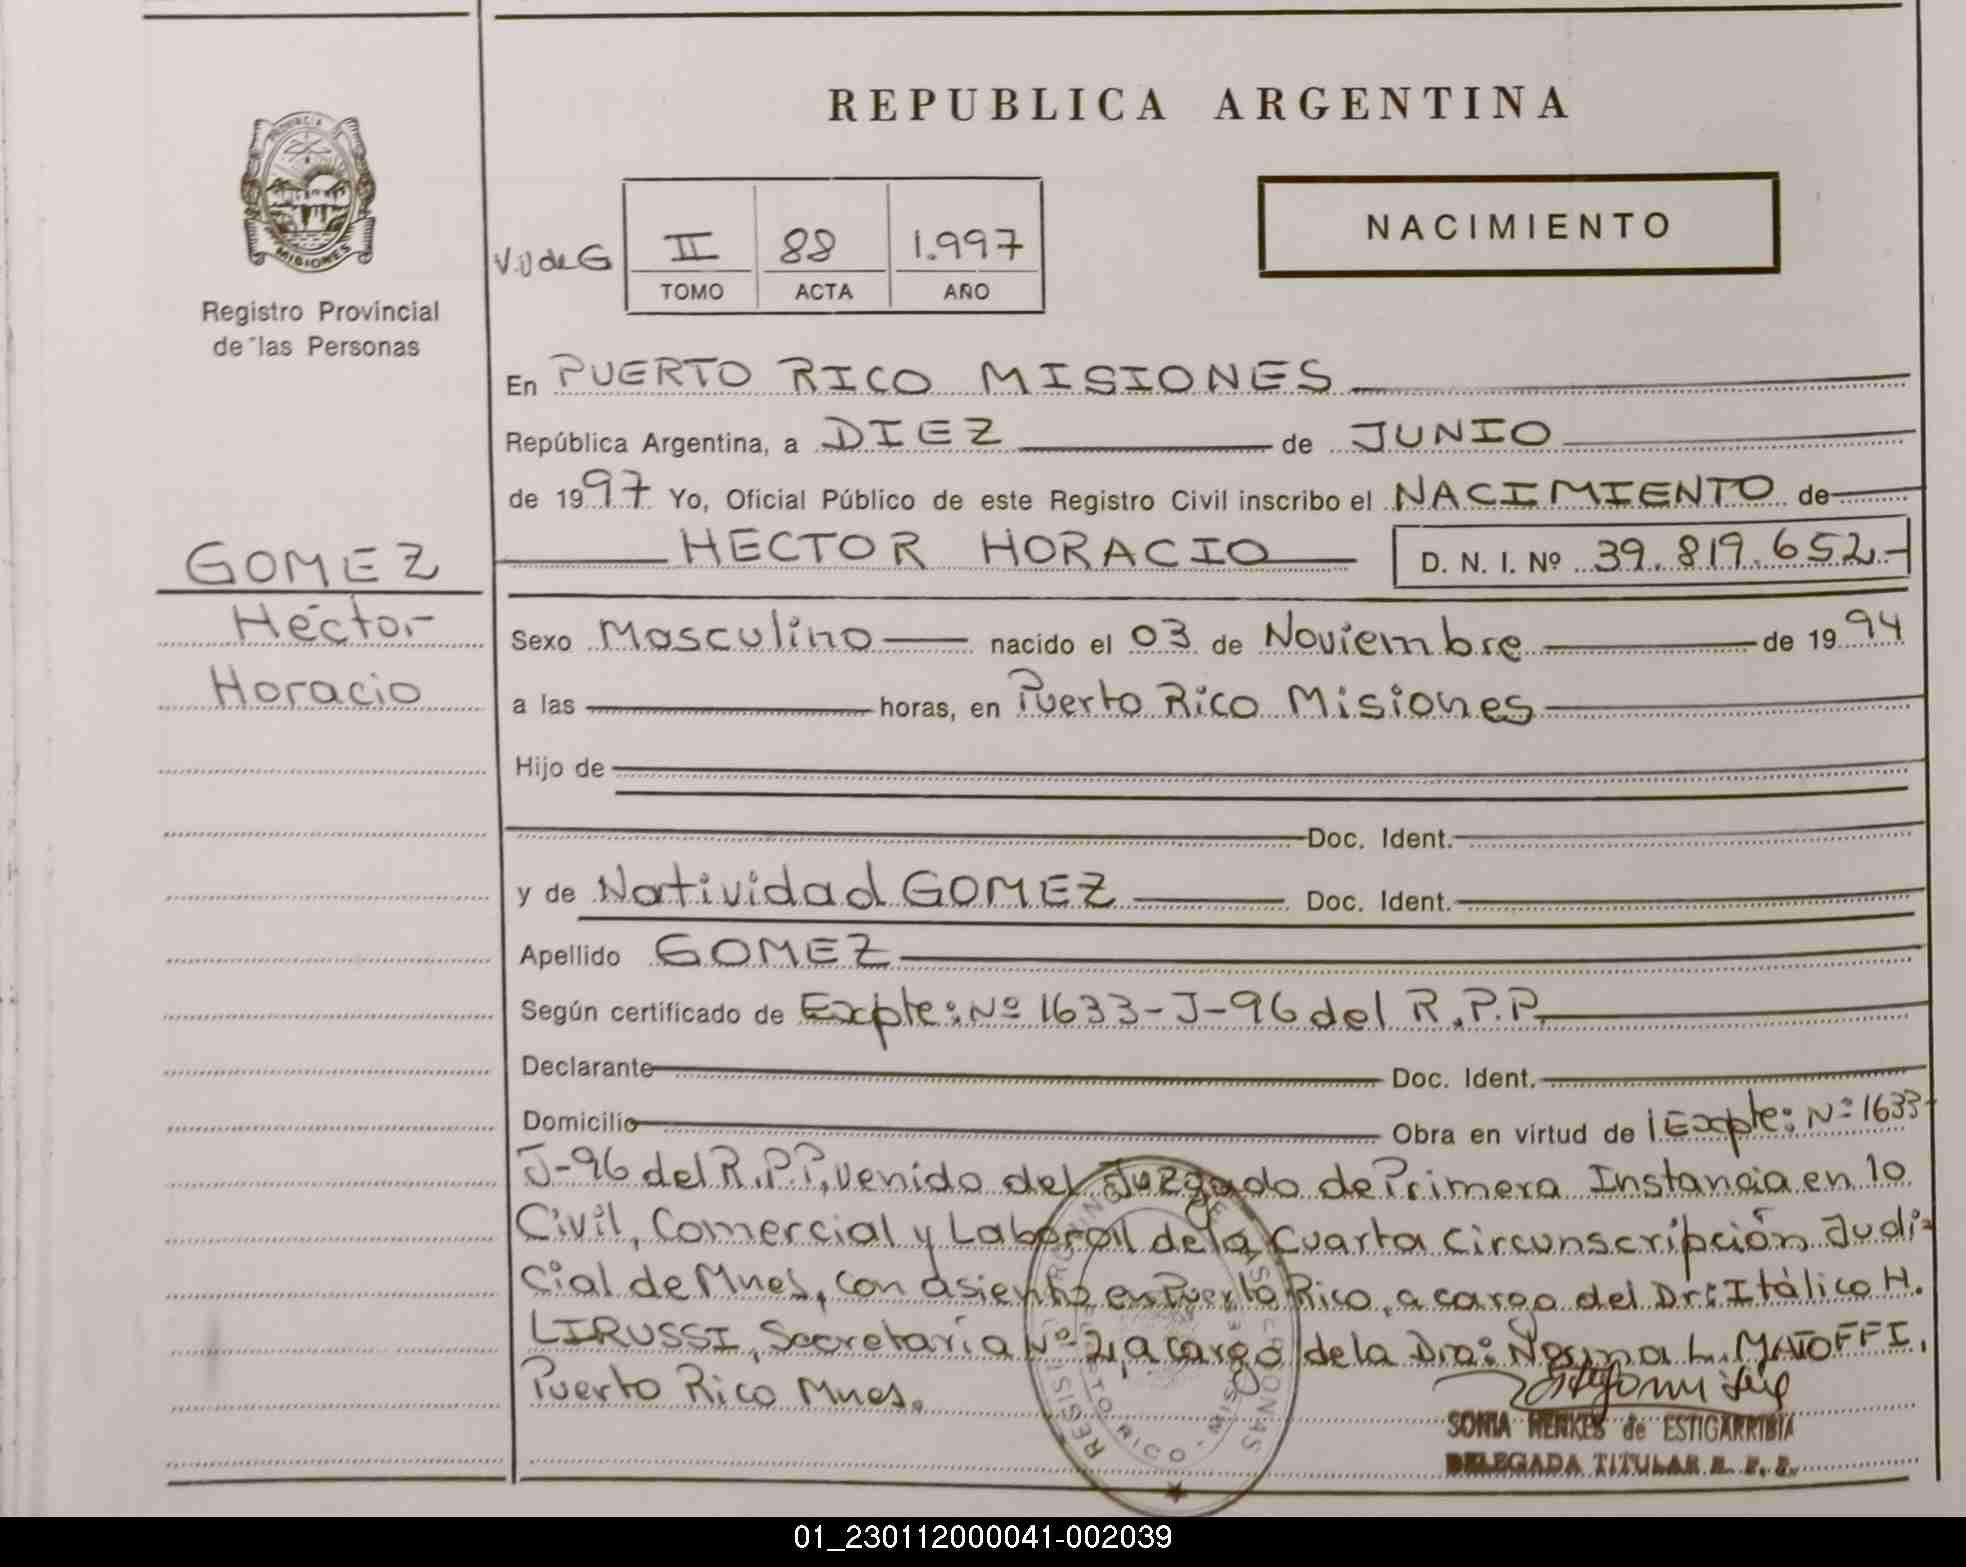 REPUBLICA ARGENTINA
PROVINCIA
MISIONES
Registro Provincial
de las Personas
NACIMIENTO
II 88 1.997
TOMO ACTA AÑO
En PUERTO RICO MISIONES
República Argentina, a DIEZ de JUNIO
de 1997 Yo, Oficial Público de este Registro Civil inscribo el NACIMIENTO de
HECTOR HORACIO D. N. I. Nº 39.819.652.-
GOMEZ
Héctor
Horacio
Sexo Masculino nacido el 03 de Noviembre de 1994
a las horas, en Puerto Rico Misiones
Hijo de
Doc. Ident.
y de Natividad GOMEZ Doc. Ident.
Apellido GOMEZ
Según certificado de Expte: Nº 1633-J-96 del R.P.P.
Declarante Doc. Ident.
Domicilio Obra en virtud de Expte: Nº 1633-
J-96 del R.P.P, venido del Juzgado de Primera Instancia en lo
Civil, Comercial y Laboral de la Cuarta Circunscripción Judi-
cial de Mnes, con asiento en Puerto Rico, a cargo del Dr: Itálico H.
LIRUSSI, Secretaría Nº 2, a cargo de la Dra: Norma L. MATOFFI,
Puerto Rico Mnes.
SONIA HENKES de ESTIGARRIBIA
DELEGADA TITULAR
PUERTO RICO - MISIONES
01_230112000041-002039